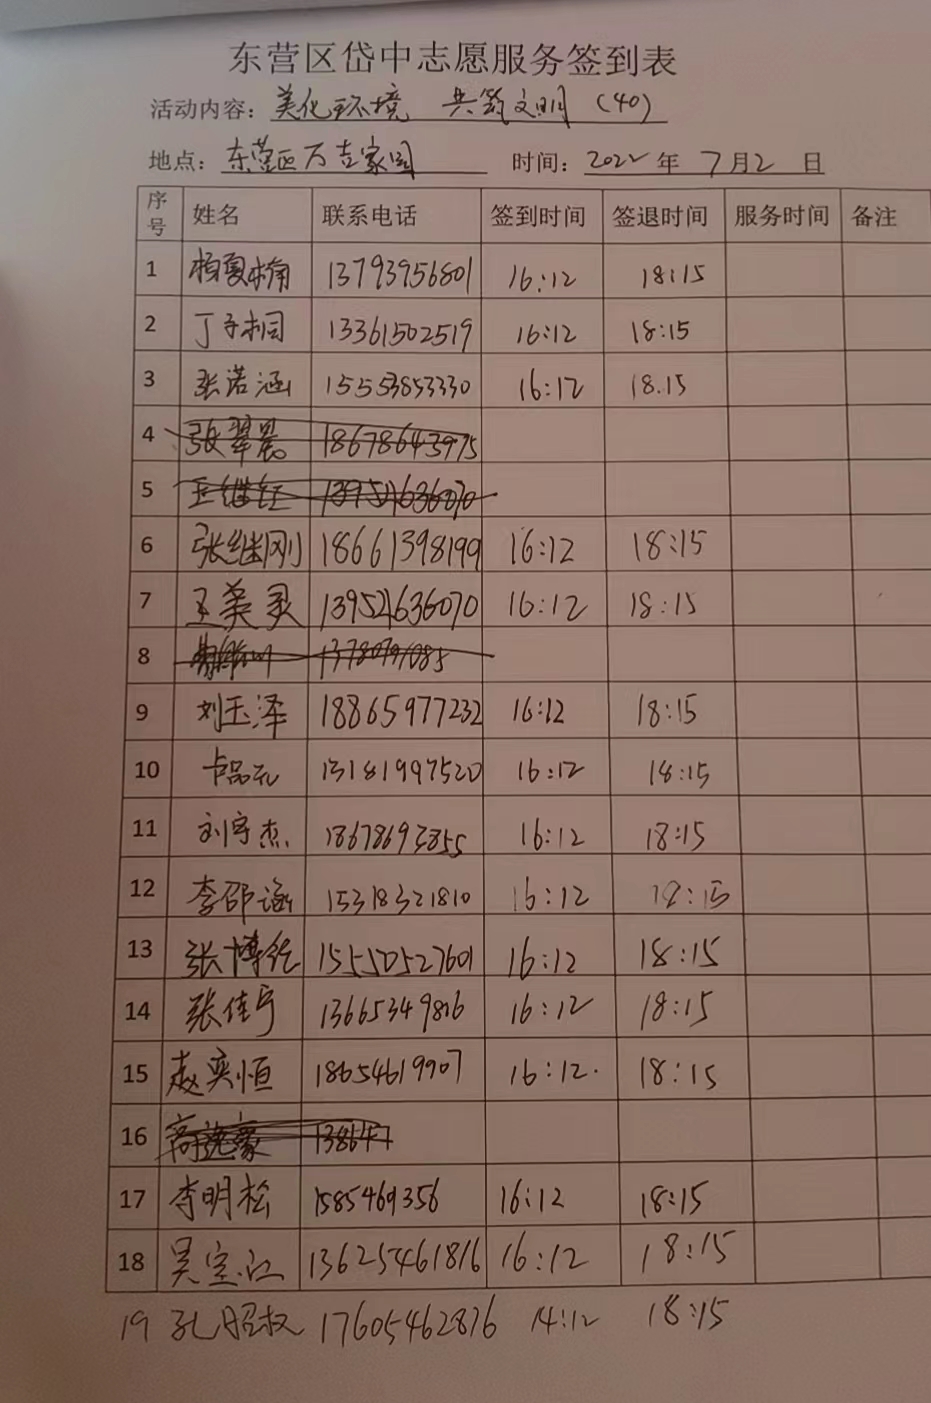 东营区岱中志愿服务签到表
活动内容：美化环境 共筑文明（40）
地点：东营区万吉家园 时间：2022年7月2日
序号 姓名 联系电话 签到时间 签退时间 服务时间 备注
1 13793956801 16:12 18:15
2 丁子桐 13361502519 16:12 18:15
3 张诺涵 15553853330 16:12 18.15
4 张翠晨 18678643975
5 王继红
6 张继刚 18661398199 16:12 18:15
7 王美灵 13952636070 16:12 18:15
8
9 刘玉泽 18865977232 16:12 18:15
10 卢品元 13181997520 16:12 18:15
11 刘宇杰 16:12 18:15
12 李邵涵 15318321810 16:12 18:15
13 张博纶 15550527601 16:12 18:15
14 张佳宁 13665349816 16:12 18:15
15 赵奕恒 18654619907 16:12. 18:15
16 138647
17 李明松 1585469356 16:12 18:15
18 吴宝江 13625461816 16:12 18:15
19 孔昭权 17605462876 14:12 18:15